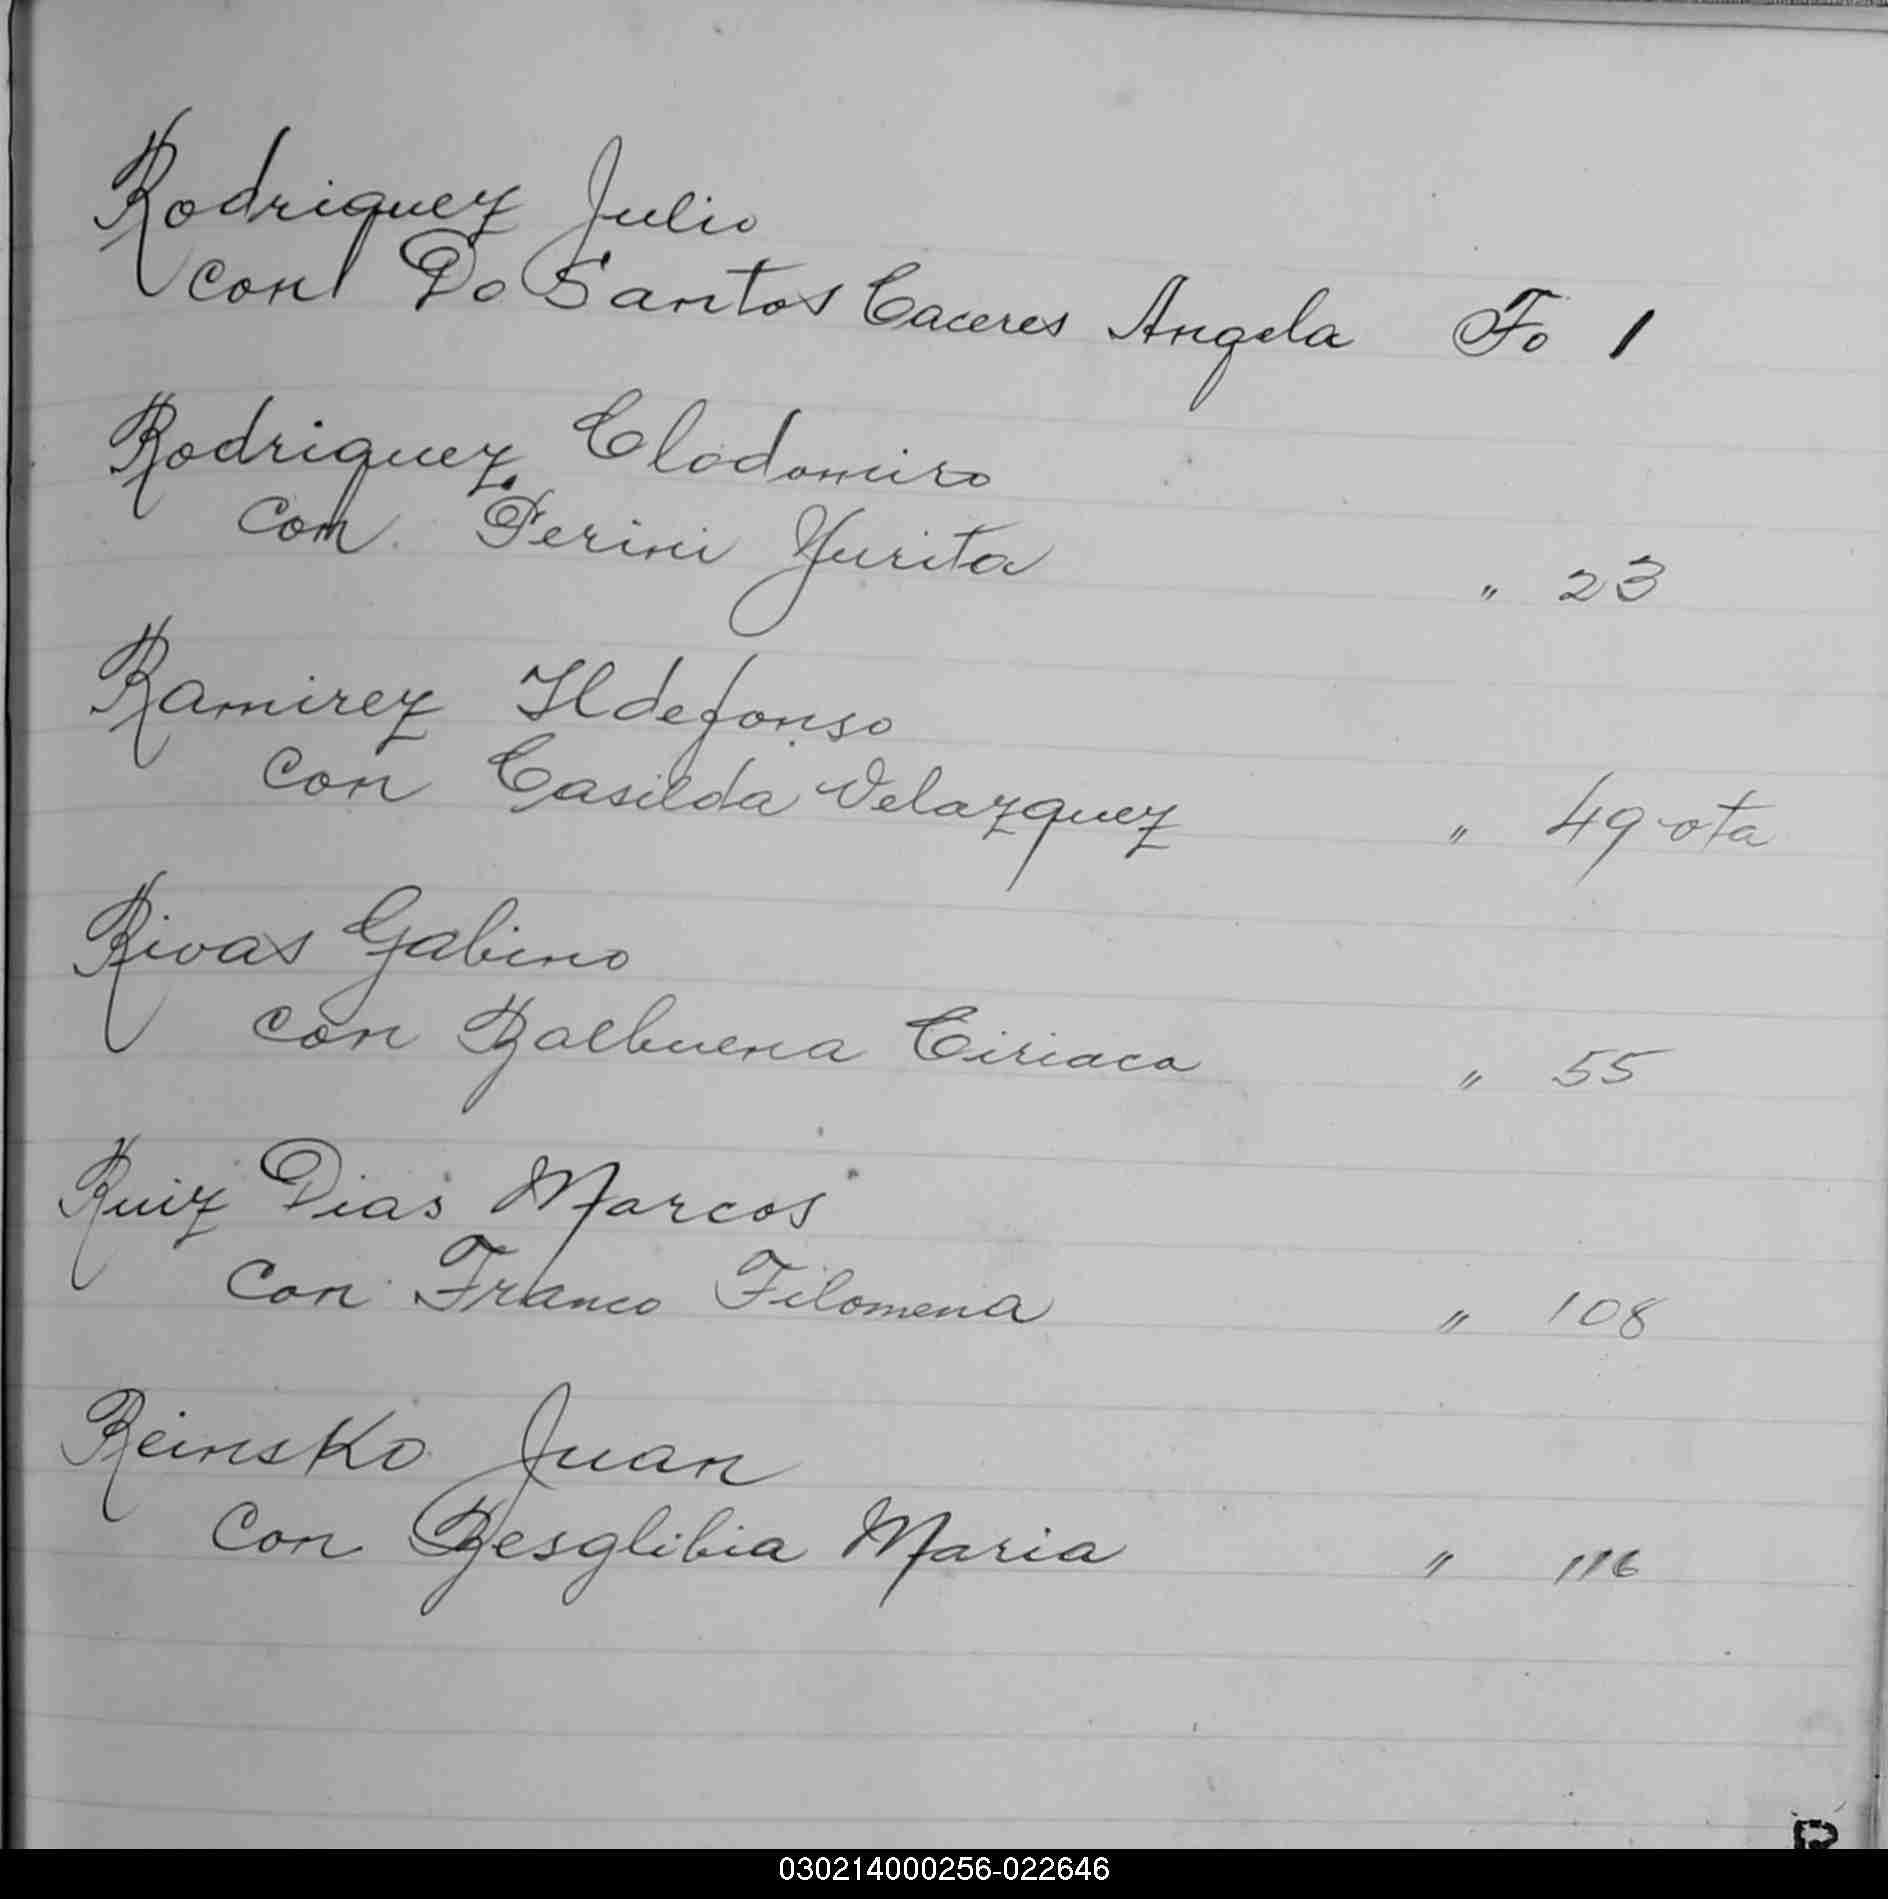 Rodriguez Julio
con Do Santos Caceres Angela Fo 1
Rodriguez Clodomiro
Con Perini Yurita
" 23
Ramirez Ildefonso
Con Casilda Velazquez " 49 ota
Rivas Gabino
con Balbuena Ciriaca " 55
Ruiz Dias Marcos
Con Franco Filomena " 108
Reinsko Juan
Con Besglibia Maria " 116
R
030214000256-022646